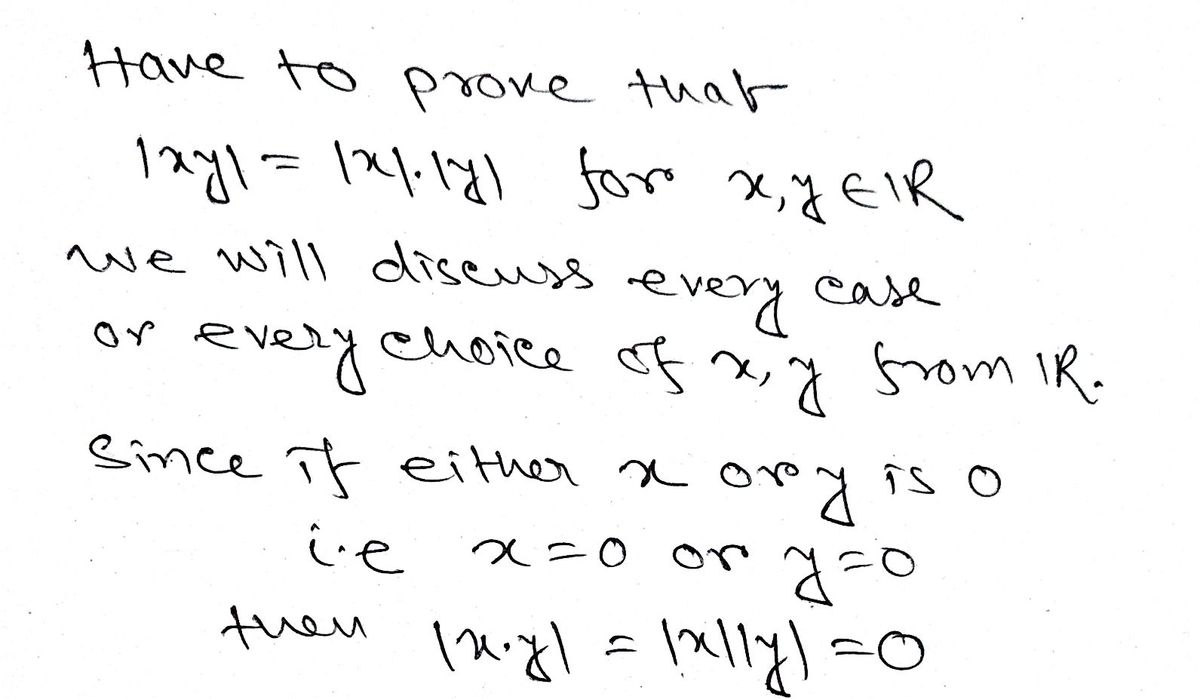 Have to prove that
|xy| = |x|.|y| for x,y ∈ ℝ
we will discuss every case
or every choice of x, y from ℝ.
Since if either x or y is 0
i.e x=0 or y=0
then |x.y| = |x||y| = 0